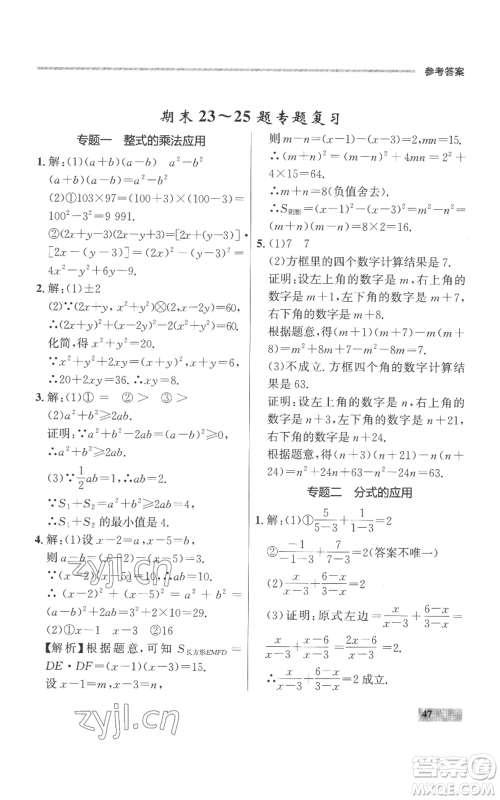 参考答案
期末23～25题专题复习
专题一 整式的乘法应用
1. 解：(1)(a＋b)(a－b) a²－b²
(a＋b)(a－b)＝a²－b²
(2)①103×97＝(100＋3)×(100－3)＝
100²－3²＝9 991.
②(2x＋y－3)(2x－y＋3)＝[2x＋(y－3)]·
[2x－(y－3)]＝(2x)²－(y－3)²＝
4x²－y²＋6y－9.
2. 解：(1)±2
(2)∵(2x＋y，x²＋2y²)＝60，
∴(2x＋y)²－2(x²＋2xy)＝60.
化简，得2x²＋y²＋2xy＝60.
∵x²＋y²＋2xy＝(x＋y)²＝x²，
∴20＋2xy＝36. ∴xy＝8.
3. 解：(1)＞ ＝ ＞ ＞
(2)a²＋b²≥2ab
证明：∵(a－b)²≥0，∴a²－2ab＋b²≥0.
∴a²＋b²≥2ab.
∴S₁＋S₂的最小值是4.
4. 解：(1)设x－2＝a，x－5＝b，
∴(x－2)²＋(x－5)²＝(a－b)²＋2ab＝
a²＋b²＝3²＋2×10＝29.
(2)①x－1 x－3 ②16
【解析】根据题意，可知S长方形EMFD＝
DE·DF＝(x－1)(x－3)＝15.
设x－1＝m，x－3＝n，
则m－n＝(x－1)－(x－3)＝2，mn＝15.
∴(m＋n)²＝(m－n)²＋4mn＝2²＋
4×15＝64.
∴m＋n＝8(负值舍去).
∴S阴影＝(x－1)²－(x－3)²＝m²－n²＝
(m＋n)(m－n)＝8×2＝16.
5. (1)7 7
(2)方框里的四个数字计算结果是7.
证明：设左上角的数字是m，右上角的
数字是m＋1，左下角的数字是m＋7，
右下角的数字是m＋8.
根据题意，得(m＋1)(m＋7)－m(m＋
8)＝m²＋8m＋7－m²－8m＝7.
(3)不成立. 方框里的四个数字计算结
果是63.
证明：设左上角的数字是n，右上角的
数字是n＋3，左下角的数字是n＋21，
右下角的数字是n＋24.
根据题意，得(n＋3)(n＋21)－n(n＋
24)＝n²＋24n＋63－n²－24n＝63.
专题二 分式的应用
1. 解：(1)①5/(5－3)＋1/(1－3)
②－1/(－1－3)＋7/(7－3)＝2(答案不唯一)
(2)x/(x－3)＋(6－x)/(6－x－3)＝2
(3)证明：原式左边＝x/(x－3)＋(6－x)/(3－x)＝
x/(x－3)＋(x－6)/(x－3)＝(2x－6)/(x－3)＝2.
∴x/(x－3)＋(6－x)/(6－x－3)＝2成立.
zyjl.cn
zyjl.cn
47